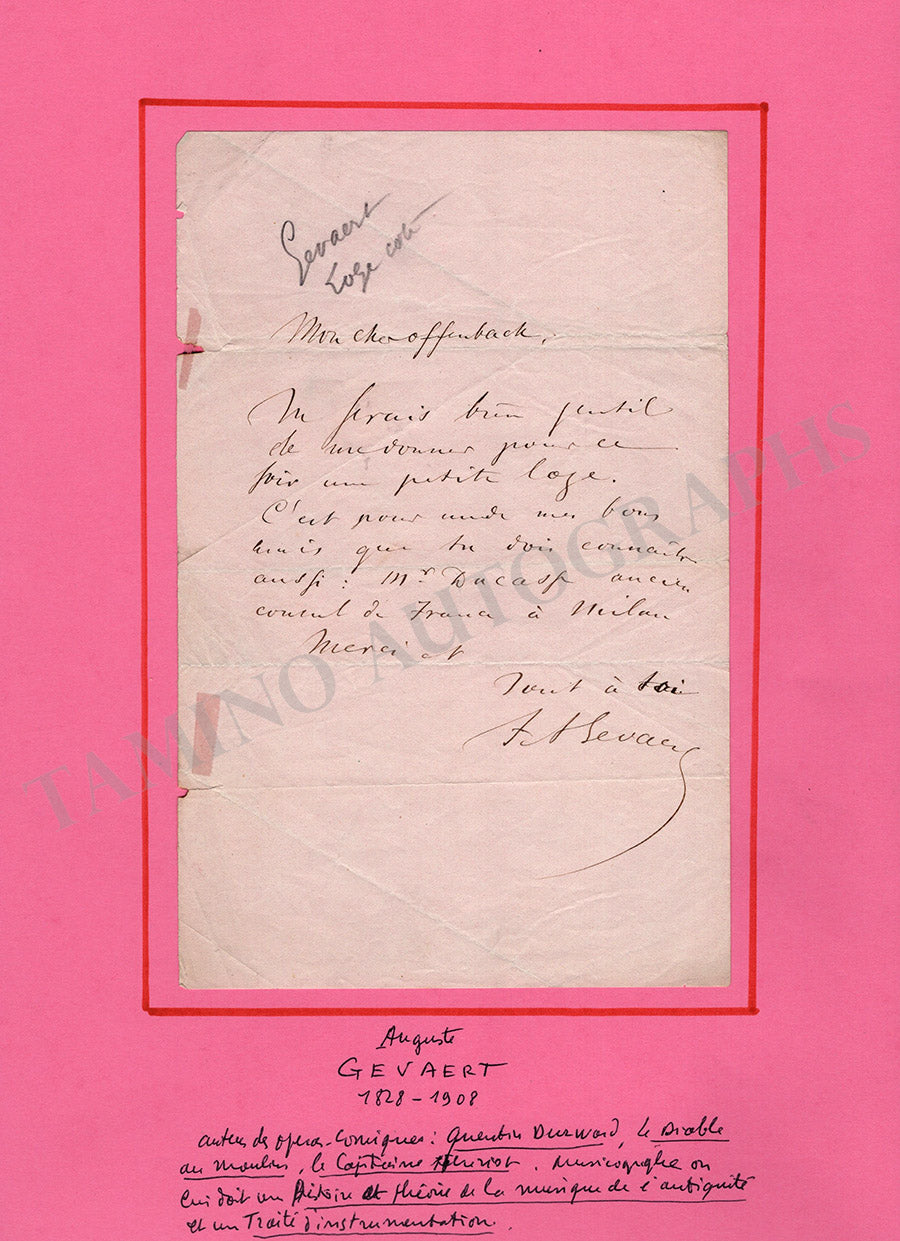 Gevaert
Loge coté
Mon cher offenbach,
Tu serais bien gentil
de me donner pour ce
soir une petite loge.
C'est pour un de mes bons
amis que tu dois connaître
aussi : Mr Ducasse ancien
consul de France à Milan
Merci et
Tout à toi
F A Gevaert
TAMINO AUTOGRAPHS
Auguste
GEVAERT
1828-1908
auteur de opéras-comiques : Quentin Durward, le Diable
au moulin, le Capitaine Henriot. Musicographe on
lui doit un Histoire et théorie de la musique de l'antiquité
et un Traité d'instrumentation.